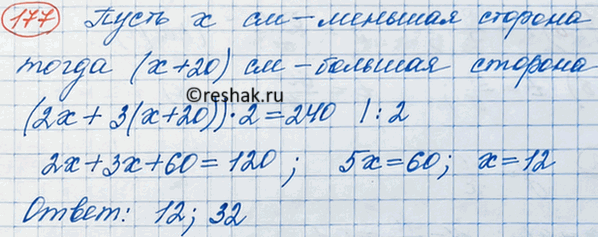 177 Пусть x см - меньшая сторона
тогда (x+20) см - большая сторона
©reshak.ru
(2x + 3(x+20))·2=240 | : 2
2x+3x+60=120; 5x=60; x=12
Ответ: 12; 32